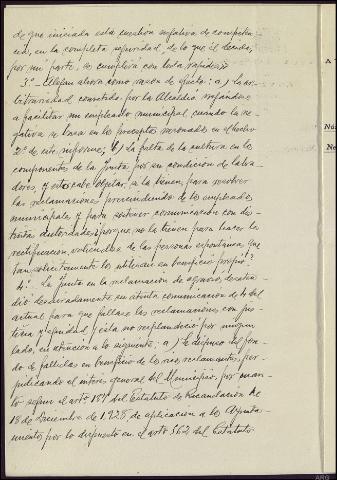 de que iniciada esta cuestión negativa de competen-
cia, en la completa seguridad, de lo que él decida,
por mi parte, se cumplirá con toda rapidez.
3º - Alegan ahora como razón de queja: a) la ar-
bitrariedad cometida por la Alcaldía negándose
a facilitar un empleado municipal, cuando la ne-
gativa se basa en los preceptos reseñados en el hecho
2º de este informe; b) la falta de cultura en los
componentes de la Junta por su condición de labra-
dores, y a esto cabe objetar, si la tienen para resolver
las reclamaciones prescindiendo de los empleados
municipales y para sostener comunicación con dis-
tintas autoridades, ¿por qué no la tienen para hacer la
rectificación, valiéndose de las personas espontáneas que
tan solícitamente los utilizan en beneficio propio?
4º - La Junta en la reclamación de agravios,
dió descaradamente en atenta comunicación de 4 del
actual para que fallase las reclamaciones con jus-
ticia y equidad y ésta no resplandeció por ningún
lado, en atención a lo siguiente: a) Se dispuso del fon-
do de fallidos en beneficio de los ricos reclamantes, per-
judicando el interés general del Municipio, por cuan-
to según el artº 187 del Estatuto de Recaudación de
18 de Diciembre de 1928 de aplicación a los Ayunta-
mientos por lo dispuesto en el artº 562 del Estatuto
A
Nú
Ne
ARG